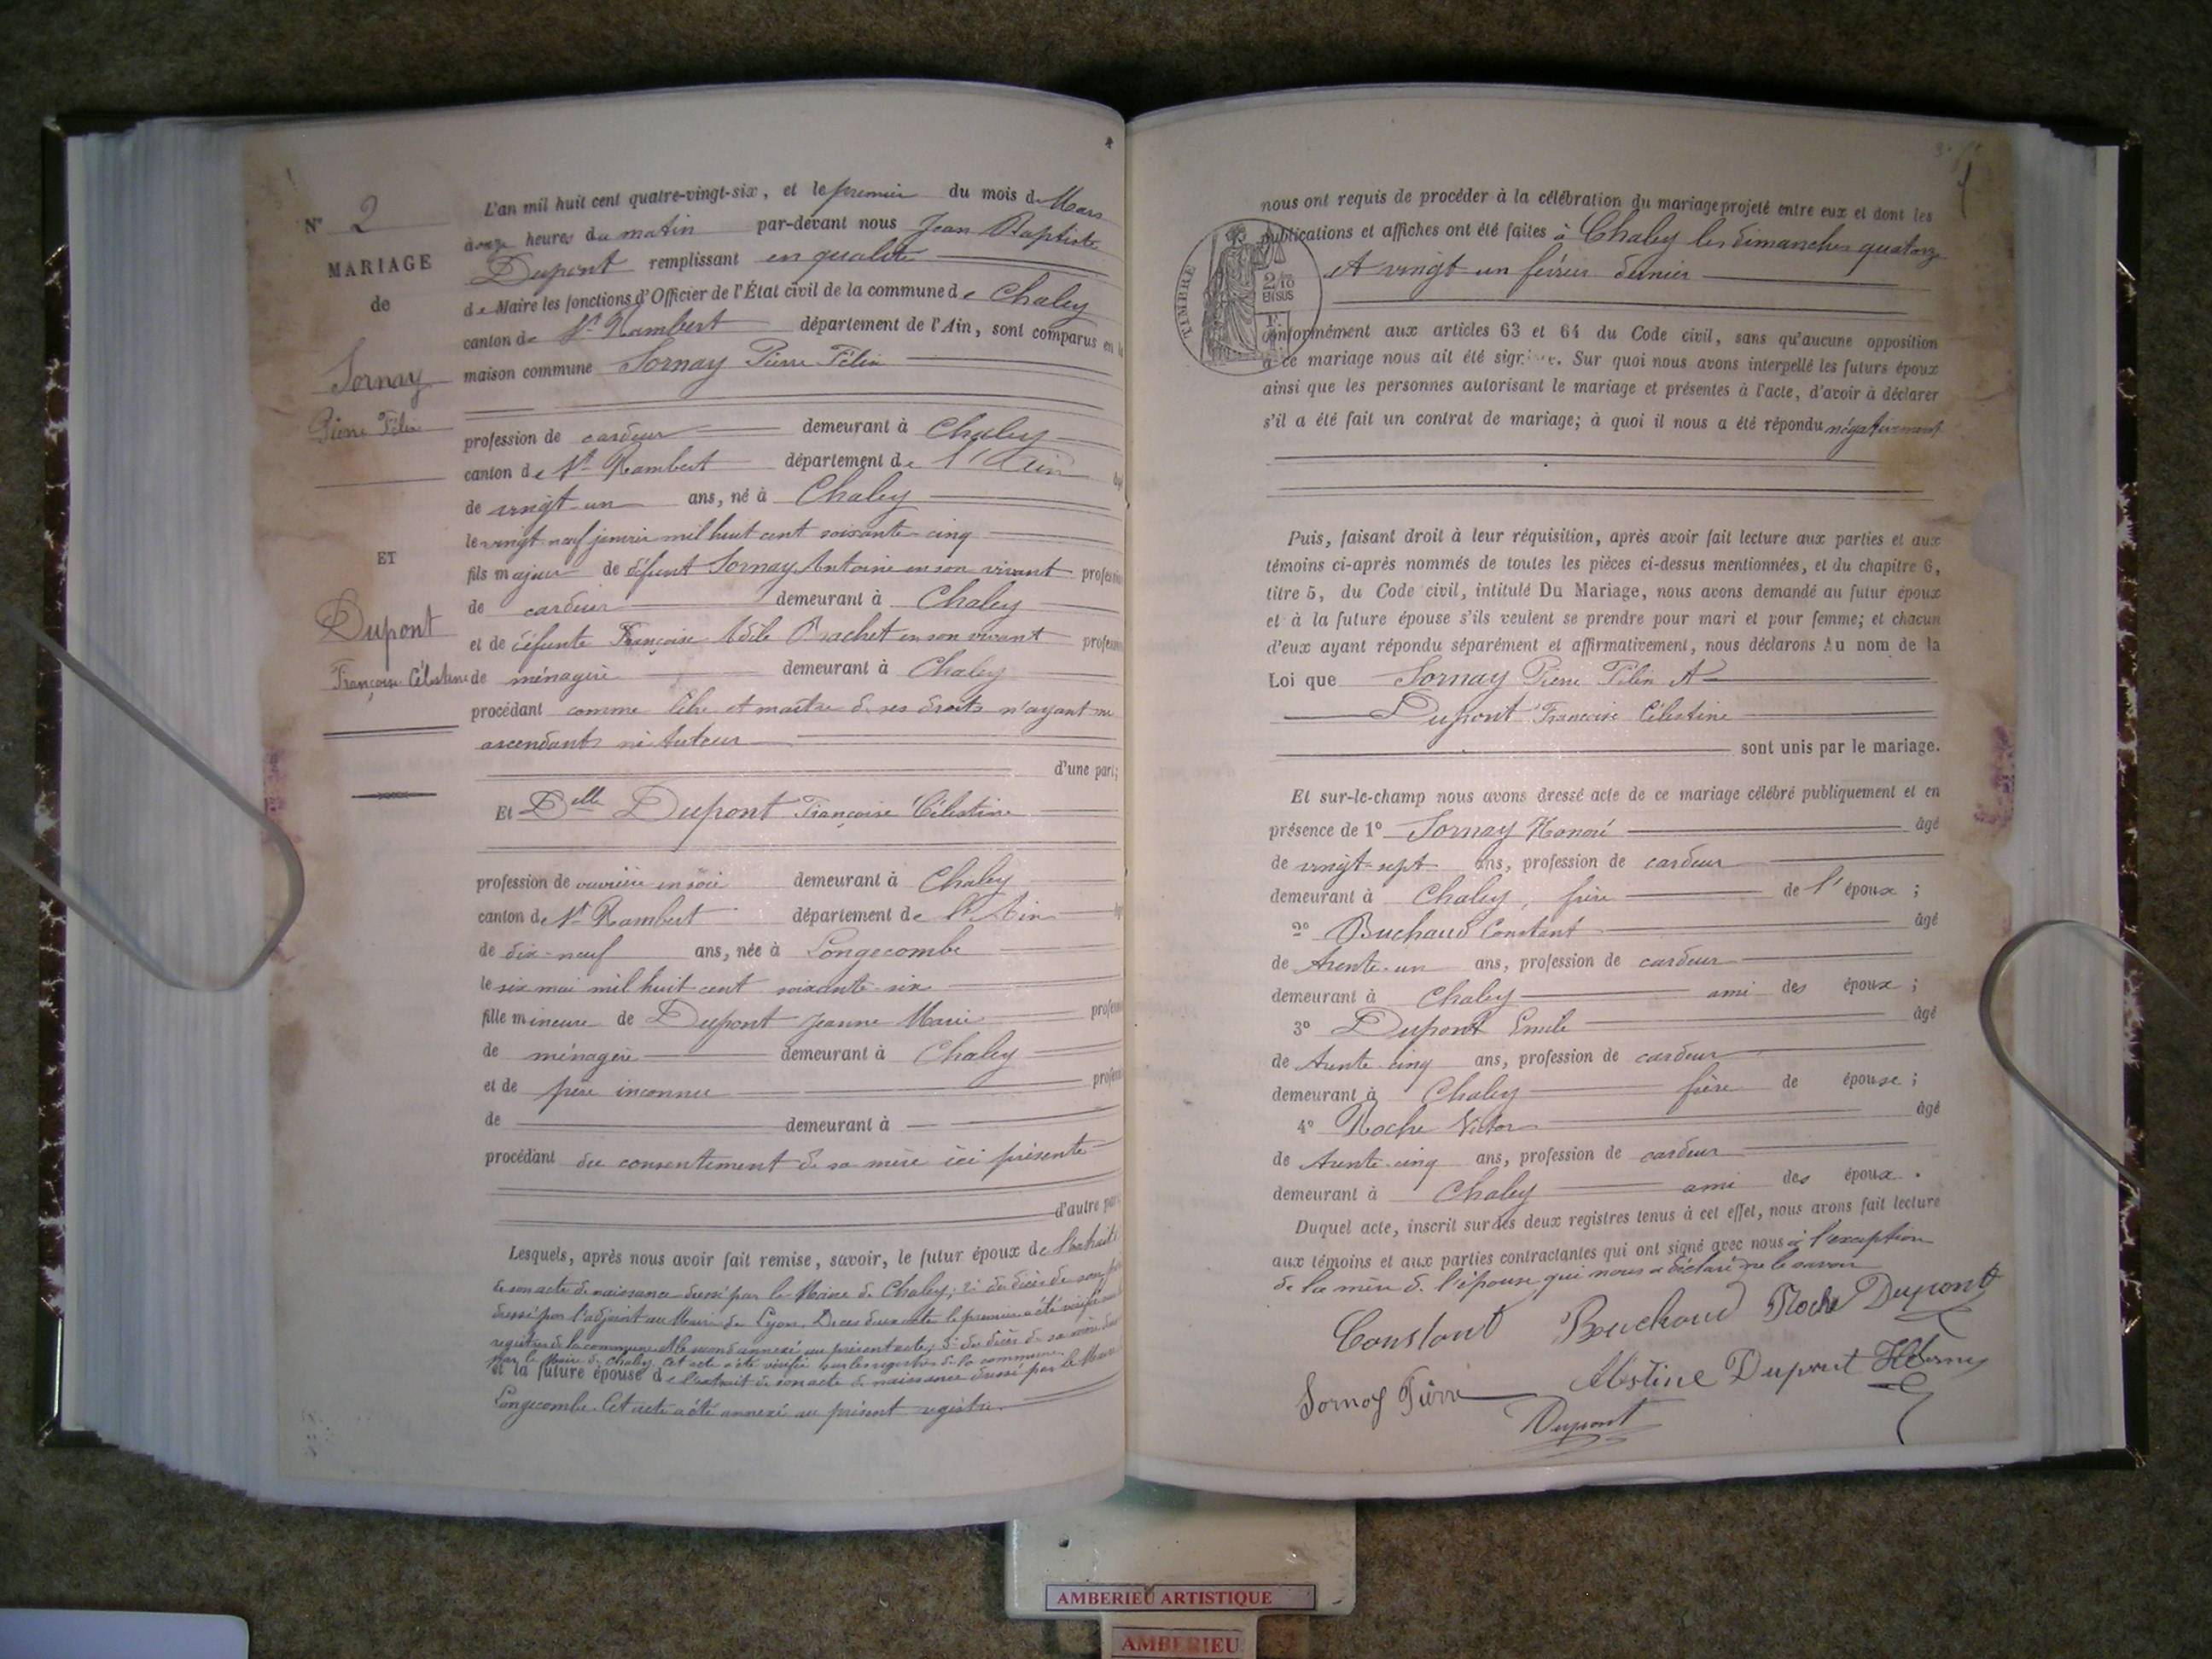 N° 2
MARIAGE
de
Sornay
Pierre Félix
ET
Dupont
Françoise Célestine
L'an mil huit cent quatre-vingt-six, et le premier du mois de Mars
à onze heures du matin par-devant nous Jean Baptiste
Dupont remplissant en qualité
de Maire les fonctions d'Officier de l'État civil de la commune de Chaley
canton de St Rambert département de l'Ain, sont comparus en la
maison commune Sornay Pierre Félix
profession de cardeur demeurant à Chaley
canton de St Rambert département de l'Ain âgé
de vingt-un ans, né à Chaley
le vingt neuf janvier mil huit cent soixante-cinq
fils majeur de défunt Sornay Antoine en son vivant profession
de cardeur demeurant à Chaley
et de défunte Françoise Adèle Brachet en son vivant profession
de ménagère demeurant à Chaley
procédant comme libre et maître de ses droits n'ayant ni
ascendants ni tuteur
d'une part;
Et Delle Dupont Françoise Célestine
profession de ouvrière en soie demeurant à Chaley
canton de St Rambert département de l'Ain âgé
de dix-neuf ans, née à Longecombe
le six mai mil huit cent soixante-six
fille mineure de Dupont Jeanne Marie profess
de ménagère demeurant à Chaley
et de père inconnu profess
de demeurant à
procédant du consentement de sa mère ici présente
d'autre part
Lesquels, après nous avoir fait remise, savoir, le futur époux de l'extrait
de son acte de naissance dressé par le Maire de Chaley; 2° du décès de son père
dressé par l'adjoint au Maire de Lyon. De ces deux actes le premier a été vérifié
registres de la commune et le second annexé au présent acte; 3° du décès de sa mère
par le Maire de Chaley cet acte a été vérifié sur les registres de la commune
et la future épouse de l'extrait de son acte de naissance dressé par le Maire
Longecombe. Cet acte a été annexé au présent registre.
nous ont requis de procéder à la célébration du mariage projeté entre eux et dont les
publications et affiches ont été faites à Chaley les dimanches quatorze
et vingt un février dernier
TIMBRE
2/10
EN SUS
conformément aux articles 63 et 64 du Code civil, sans qu'aucune opposition
à ce mariage nous ait été signifiée. Sur quoi nous avons interpellé les futurs époux
ainsi que les personnes autorisant le mariage et présentes à l'acte, d'avoir à déclarer
s'il a été fait un contrat de mariage; à quoi il nous a été répondu négativement
Puis, faisant droit à leur réquisition, après avoir fait lecture aux parties et aux
témoins ci-après nommés de toutes les pièces ci-dessus mentionnées, et du chapitre 6,
titre 5, du Code civil, intitulé Du Mariage, nous avons demandé au futur époux
et à la future épouse s'ils veulent se prendre pour mari et pour femme; et chacun
d'eux ayant répondu séparément et affirmativement, nous déclarons Au nom de la
Loi que Sornay Pierre Félix et
Dupont Françoise Célestine
sont unis par le mariage.
Et sur-le-champ nous avons dressé acte de ce mariage célébré publiquement et en
présence de 1° Sornay Honoré âgé
de vingt-sept ans, profession de cardeur
demeurant à Chaley, frère de l'époux;
2° Buchaud Constant âgé
de trente-un ans, profession de cardeur
demeurant à Chaley ami des époux;
3° Dupont Emile âgé
de trente-cinq ans, profession de cardeur
demeurant à Chaley frère de épouse;
4° Roche Victor âgé
de trente-cinq ans, profession de cardeur
demeurant à Chaley ami des époux.
Duquel acte, inscrit sur les deux registres tenus à cet effet, nous avons fait lecture
aux témoins et aux parties contractantes qui ont signé avec nous à l'exception
de la mère de l'épouse qui nous a déclaré ne le savoir
Constant Bouchoud Roche Dupont
Sornay Pierre Célestine Dupont
Dupont
AMBERIEU ARTISTIQUE
AMBERIEU